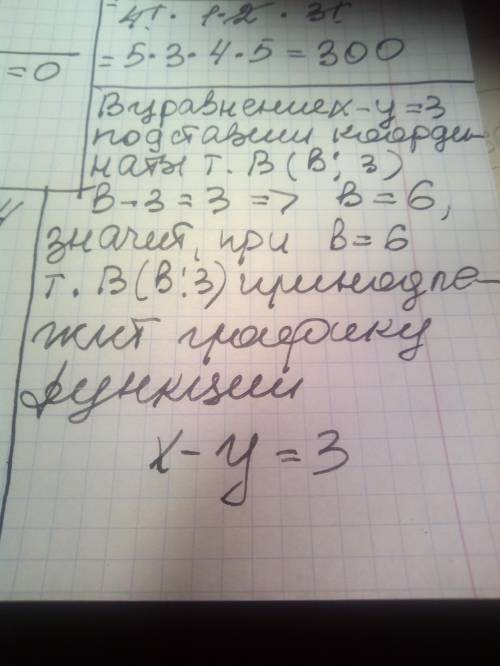 = 4! · 1·2 · 3!
= 5·3·4·5 = 300
= 0
В уравнение x-y=3
подставим коорди-
наты т. В (в; 3)
в-3=3 => в=6,
значит, при в=6
т. В(в;3) принодле-
жит графику
функции
x-y=3